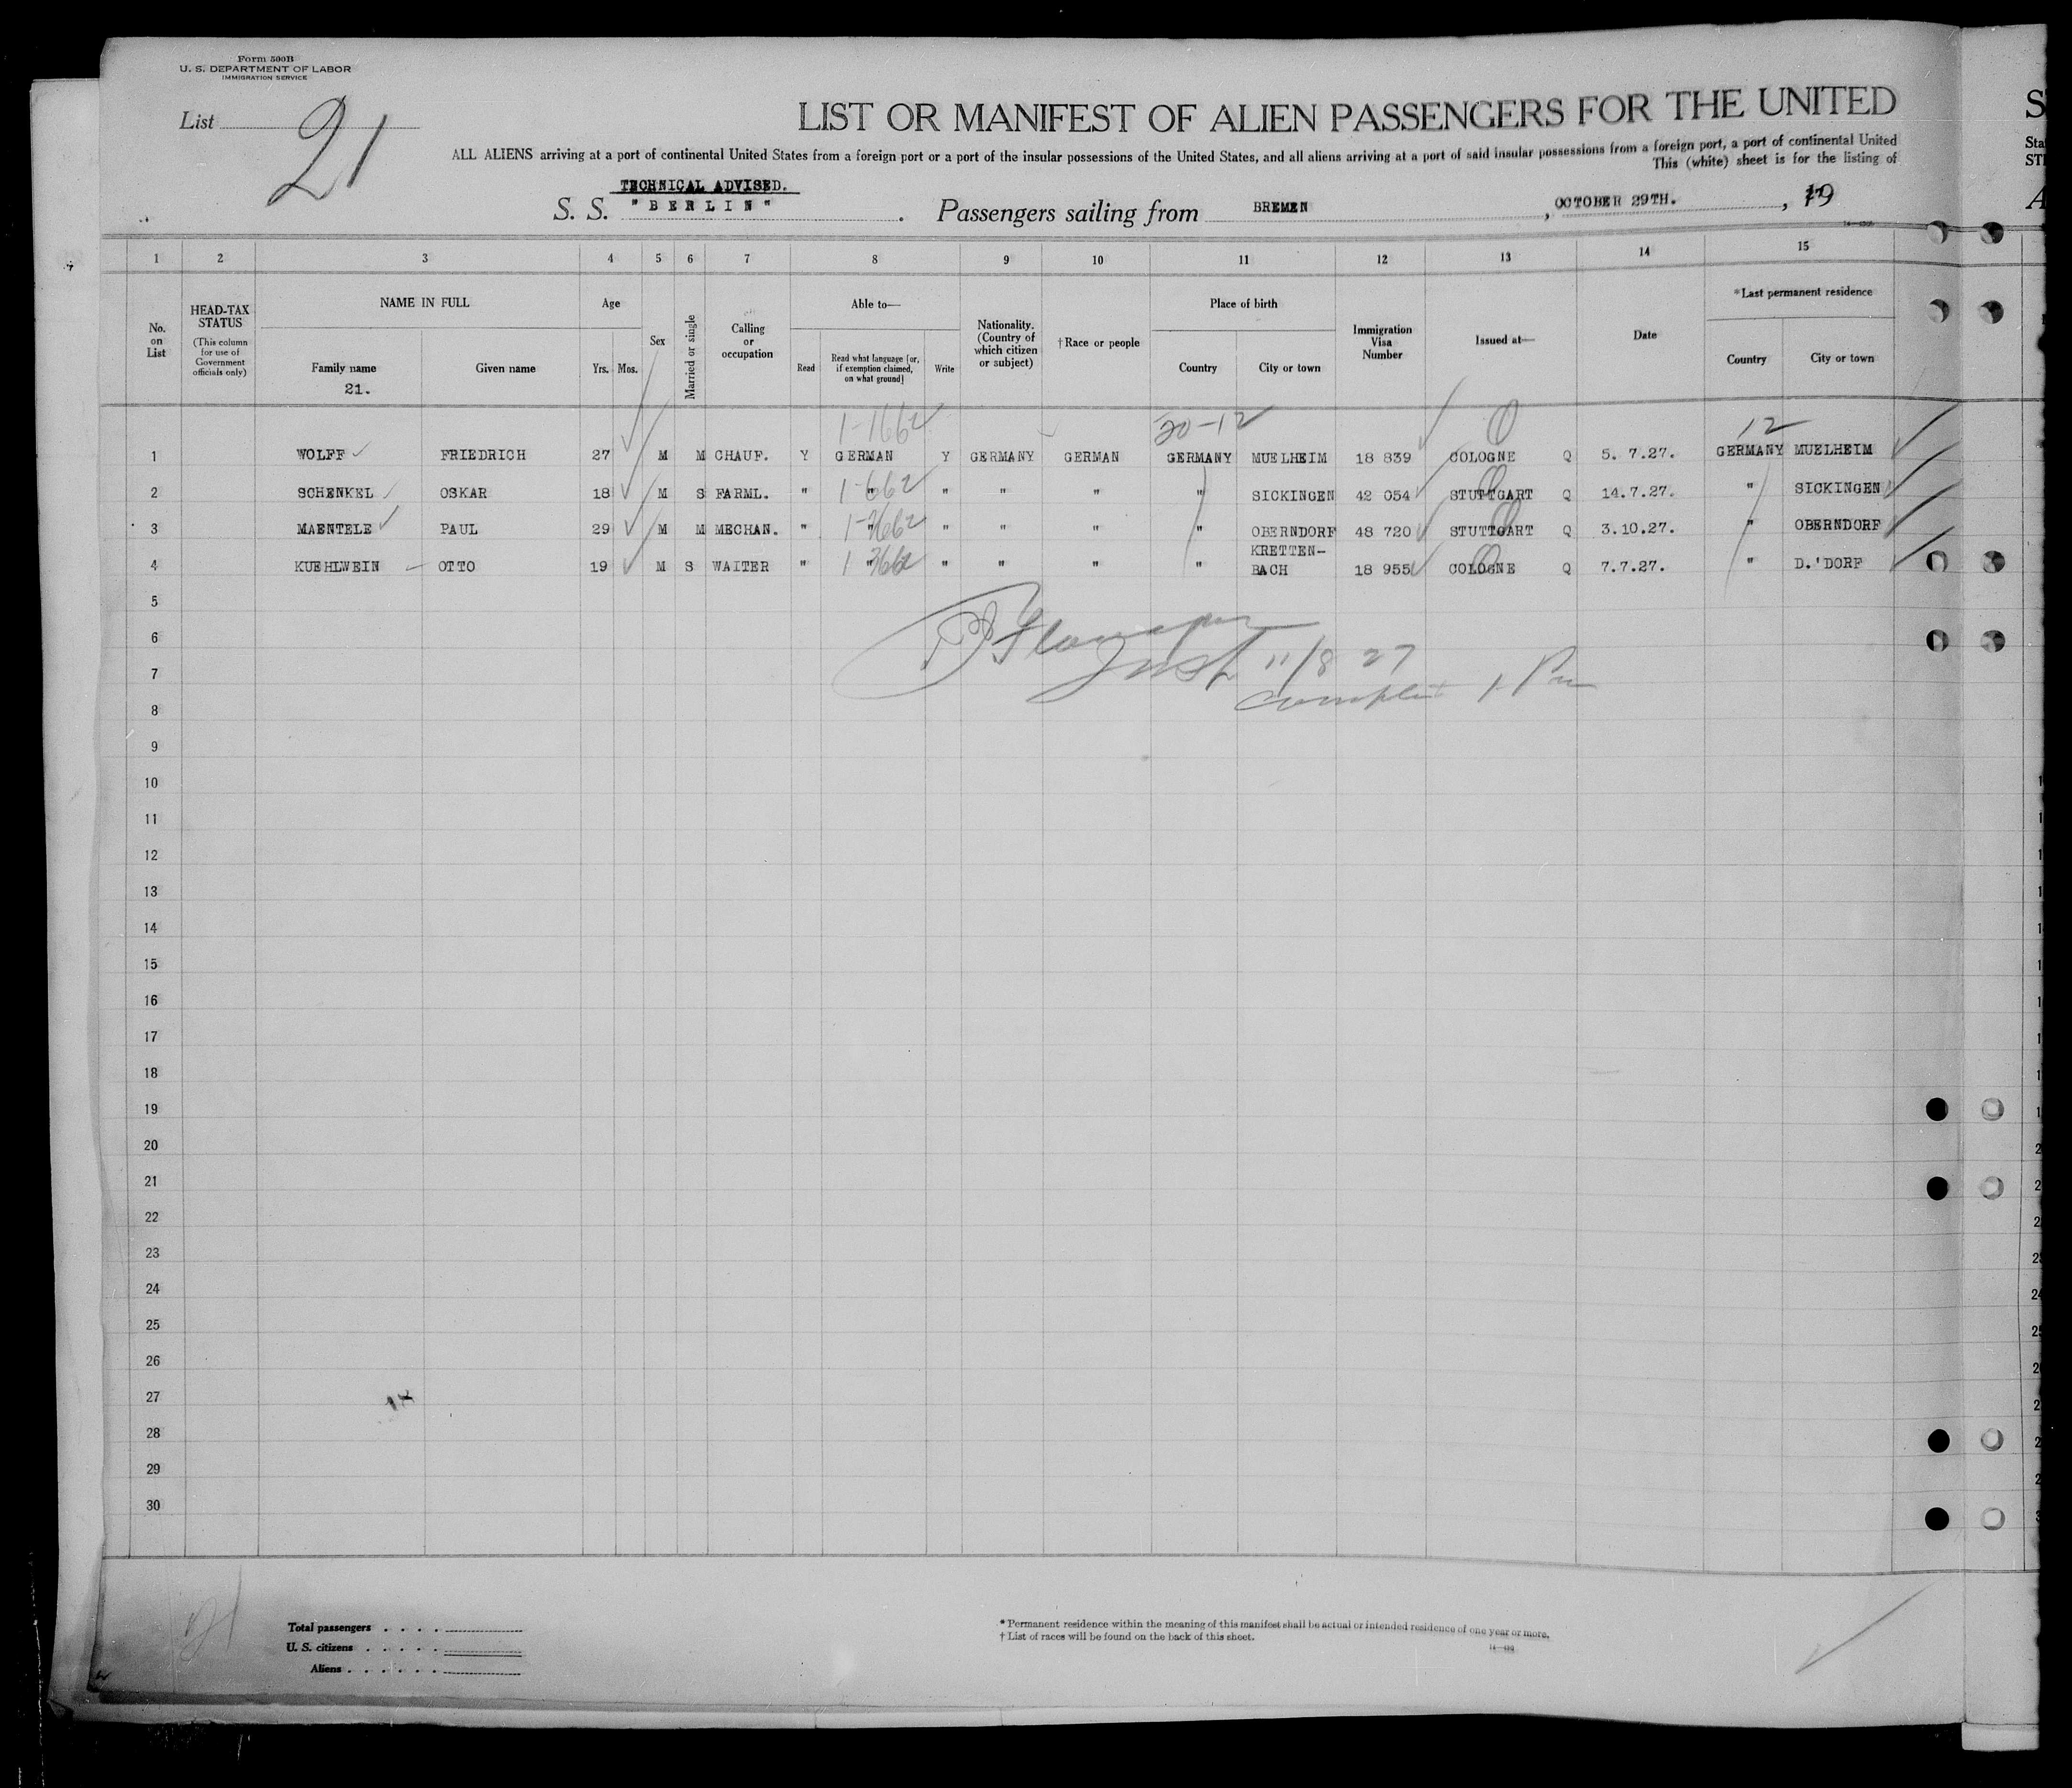 Form 500B
U. S. DEPARTMENT OF LABOR
IMMIGRATION SERVICE
List 21
LIST OR MANIFEST OF ALIEN PASSENGERS FOR THE UNITED
ALL ALIENS arriving at a port of continental United States from a foreign port or a port of the insular possessions of the United States, and all aliens arriving at a port of said insular possessions from a foreign port, a port of continental United
This (white) sheet is for the listing of
TECHNICAL ADVISED.
S. S. "BERLIN". Passengers sailing from BREMEN, OCTOBER 29TH., 19
1 2 3 4 5 6 7 8 9 10 11 12 13 14 15
No. on List
HEAD-TAX STATUS
(This column for use of Government officials only)
NAME IN FULL
Family name
21.
Given name
Age
Yrs. Mos.
Sex
Married or single
Calling or occupation
Able to—
Read
Read what language [or, if exemption claimed, on what ground]
Write
Nationality. (Country of which citizen or subject)
†Race or people
Place of birth
Country
City or town
Immigration Visa Number
Issued at—
Date
*Last permanent residence
Country
City or town
1-1662 20-12 12
1 WOLFF FRIEDRICH 27 M M CHAUF. Y GERMAN Y GERMANY GERMAN GERMANY MUELHEIM 18 839 COLOGNE Q 5. 7.27. GERMANY MUELHEIM
2 SCHENKEL OSKAR 18 M S FARML. " " 1-662 " " " " SICKINGEN 42 054 STUTTGART Q 14.7.27. " SICKINGEN
3 MAENTELE PAUL 29 M M MECHAN. " " " " " " OBERNDORF 48 720 STUTTGART Q 3.10.27. " OBERNDORF
4 KUEHLWEIN OTTO 19 M S WAITER " " " " " " KRETTEN-
BACH 18 955 COLOGNE Q 7.7.27. " D.'DORF
5
6
11/8 27
7
8
9
10
11
12
13
14
15
16
17
18
19
20
21
22
23
24
25
26
27
28
29
30
Total passengers . . . .
U. S. citizens . . . . .
Aliens . . . . . .
* Permanent residence within the meaning of this manifest shall be actual or intended residence of one year or more.
† List of races will be found on the back of this sheet.